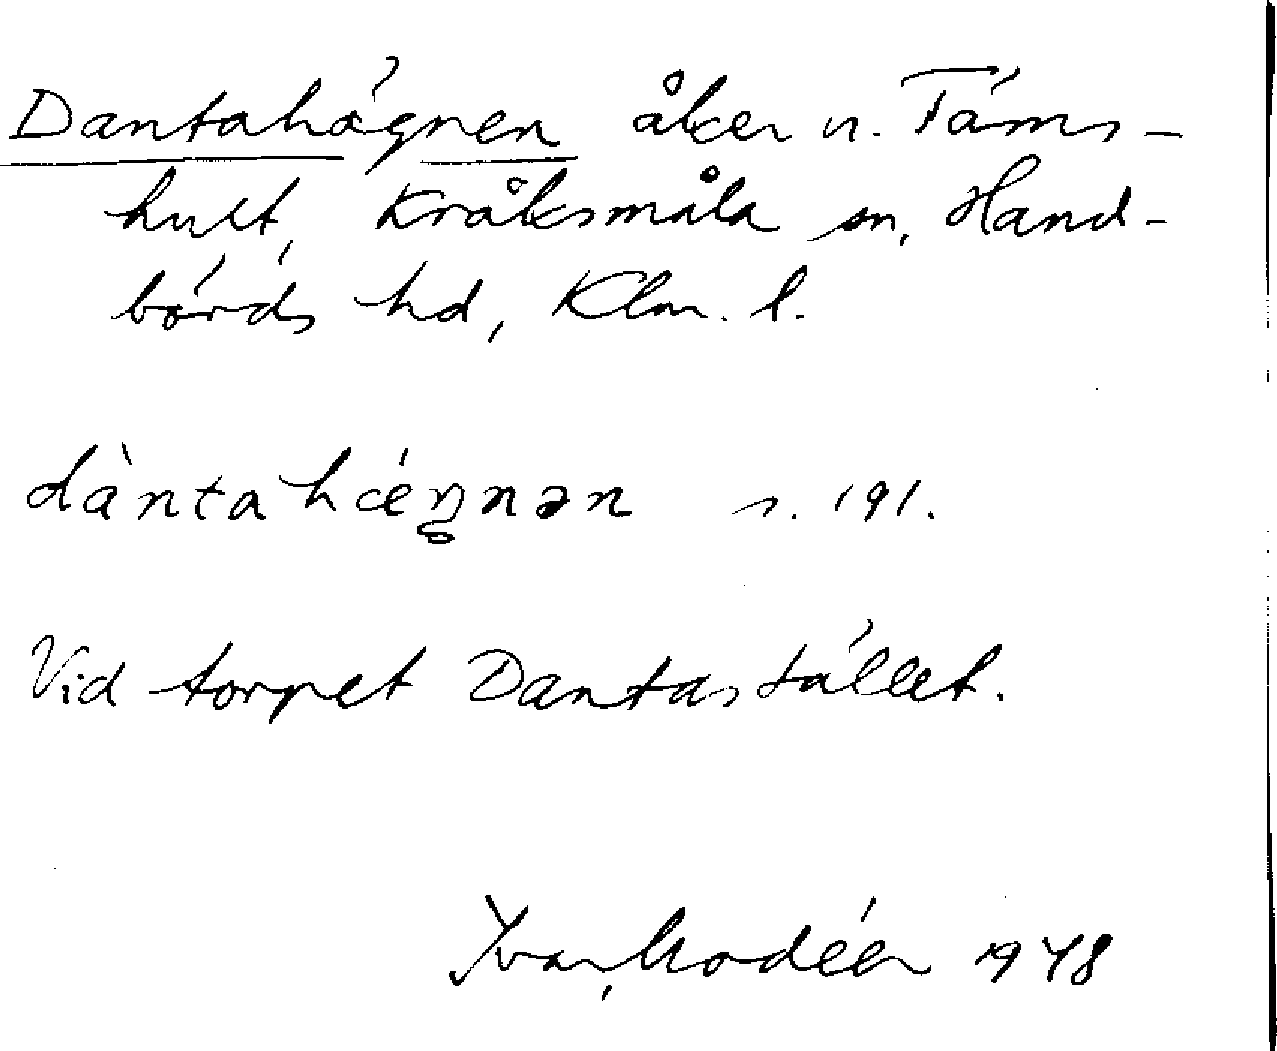 Dantahägnen åker n. Täms-
hult, Kråksmåla sn, Hand-
börds hd, Klm. l.
dàntahæ̀ŋnən s. 191.
Vid torpet Dantastället.
Ivar Modéer 1948